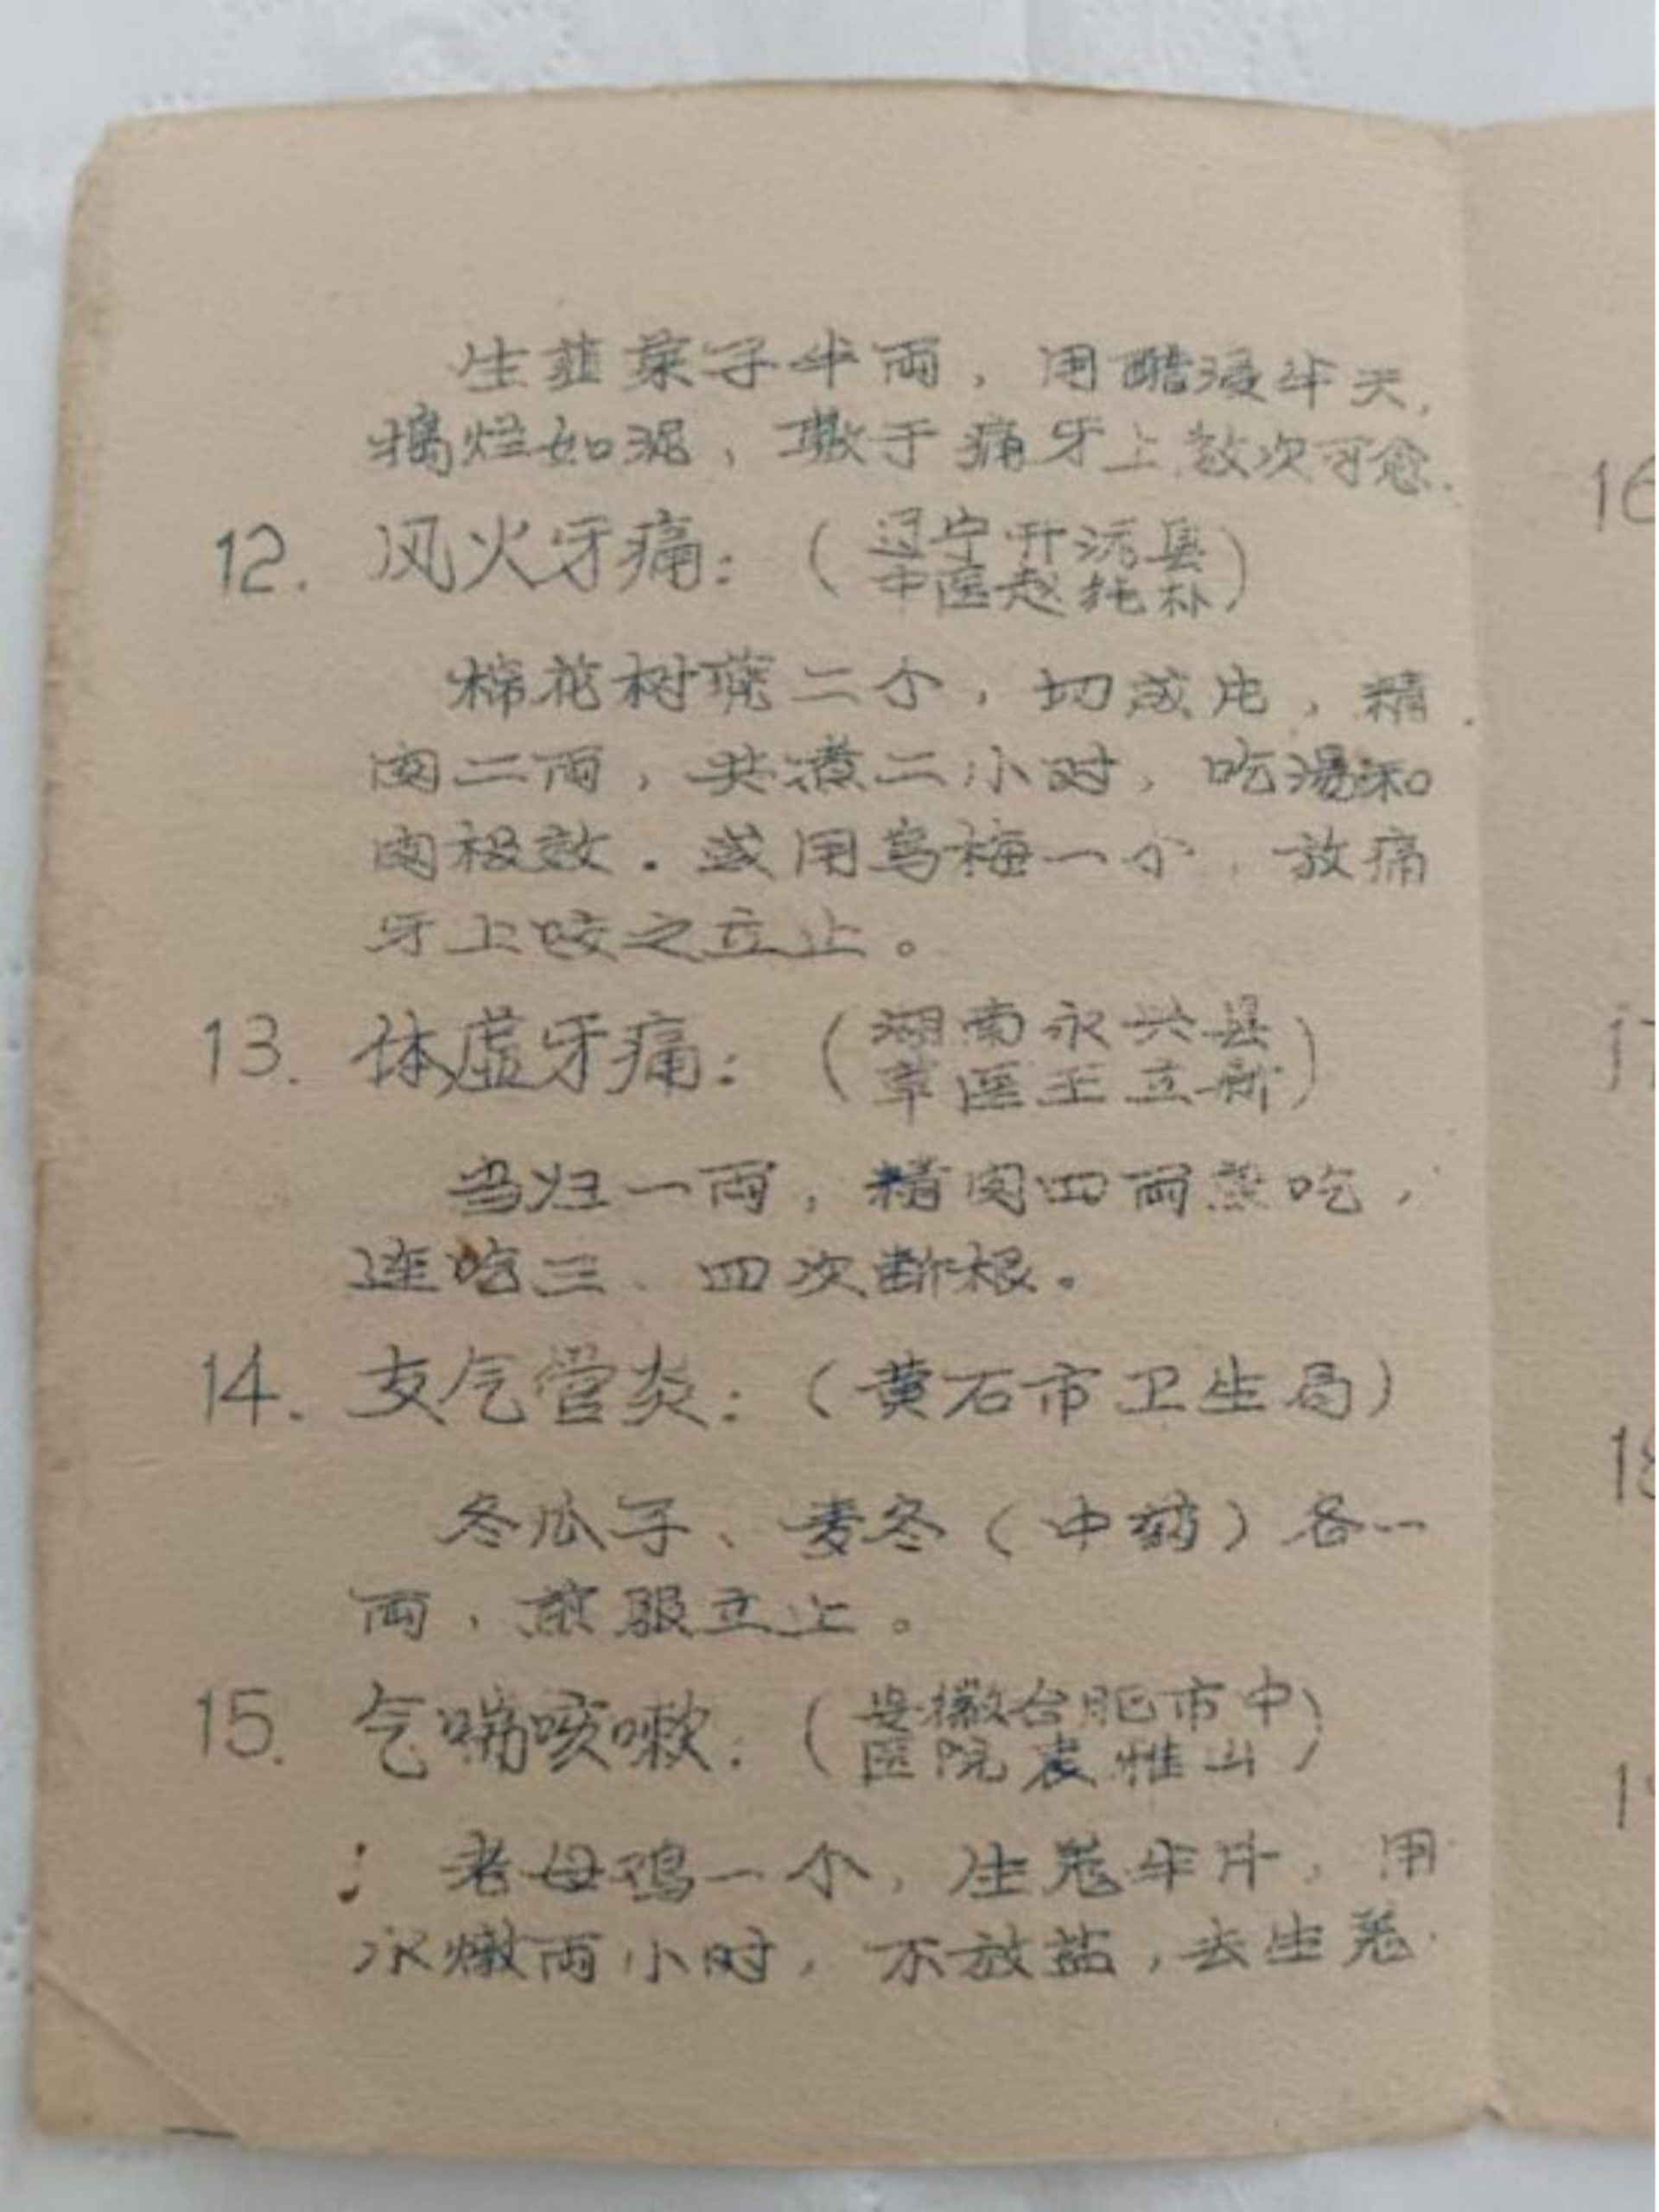 生韮菜子半両，用醋浸半天，
捣烂如泥，敷于痛牙上数次可愈.
12. 风火牙痛：（辽宁开沅县
中医赵纯朴）
棉花树蔸二个，切成片，精
肉二両，共煮二小时，吃湯和
肉极效．或用乌梅一个，放痛
牙上咬之立止。
13. 体虚牙痛：（湖南永兴县
草医王立新）
当归一両，精肉四両蒸吃，
连吃三、四次断根。
14. 支气管炎：（黄石市卫生局）
冬瓜子、麦冬（中药）各一
両，煎服立止。
15. 气喘咳嗽：（安徽合肥市中
医院袁惟山）
老母鸡一个，生葱半斤，用
水燉両小时，不放盐，去生葱
16
17
18